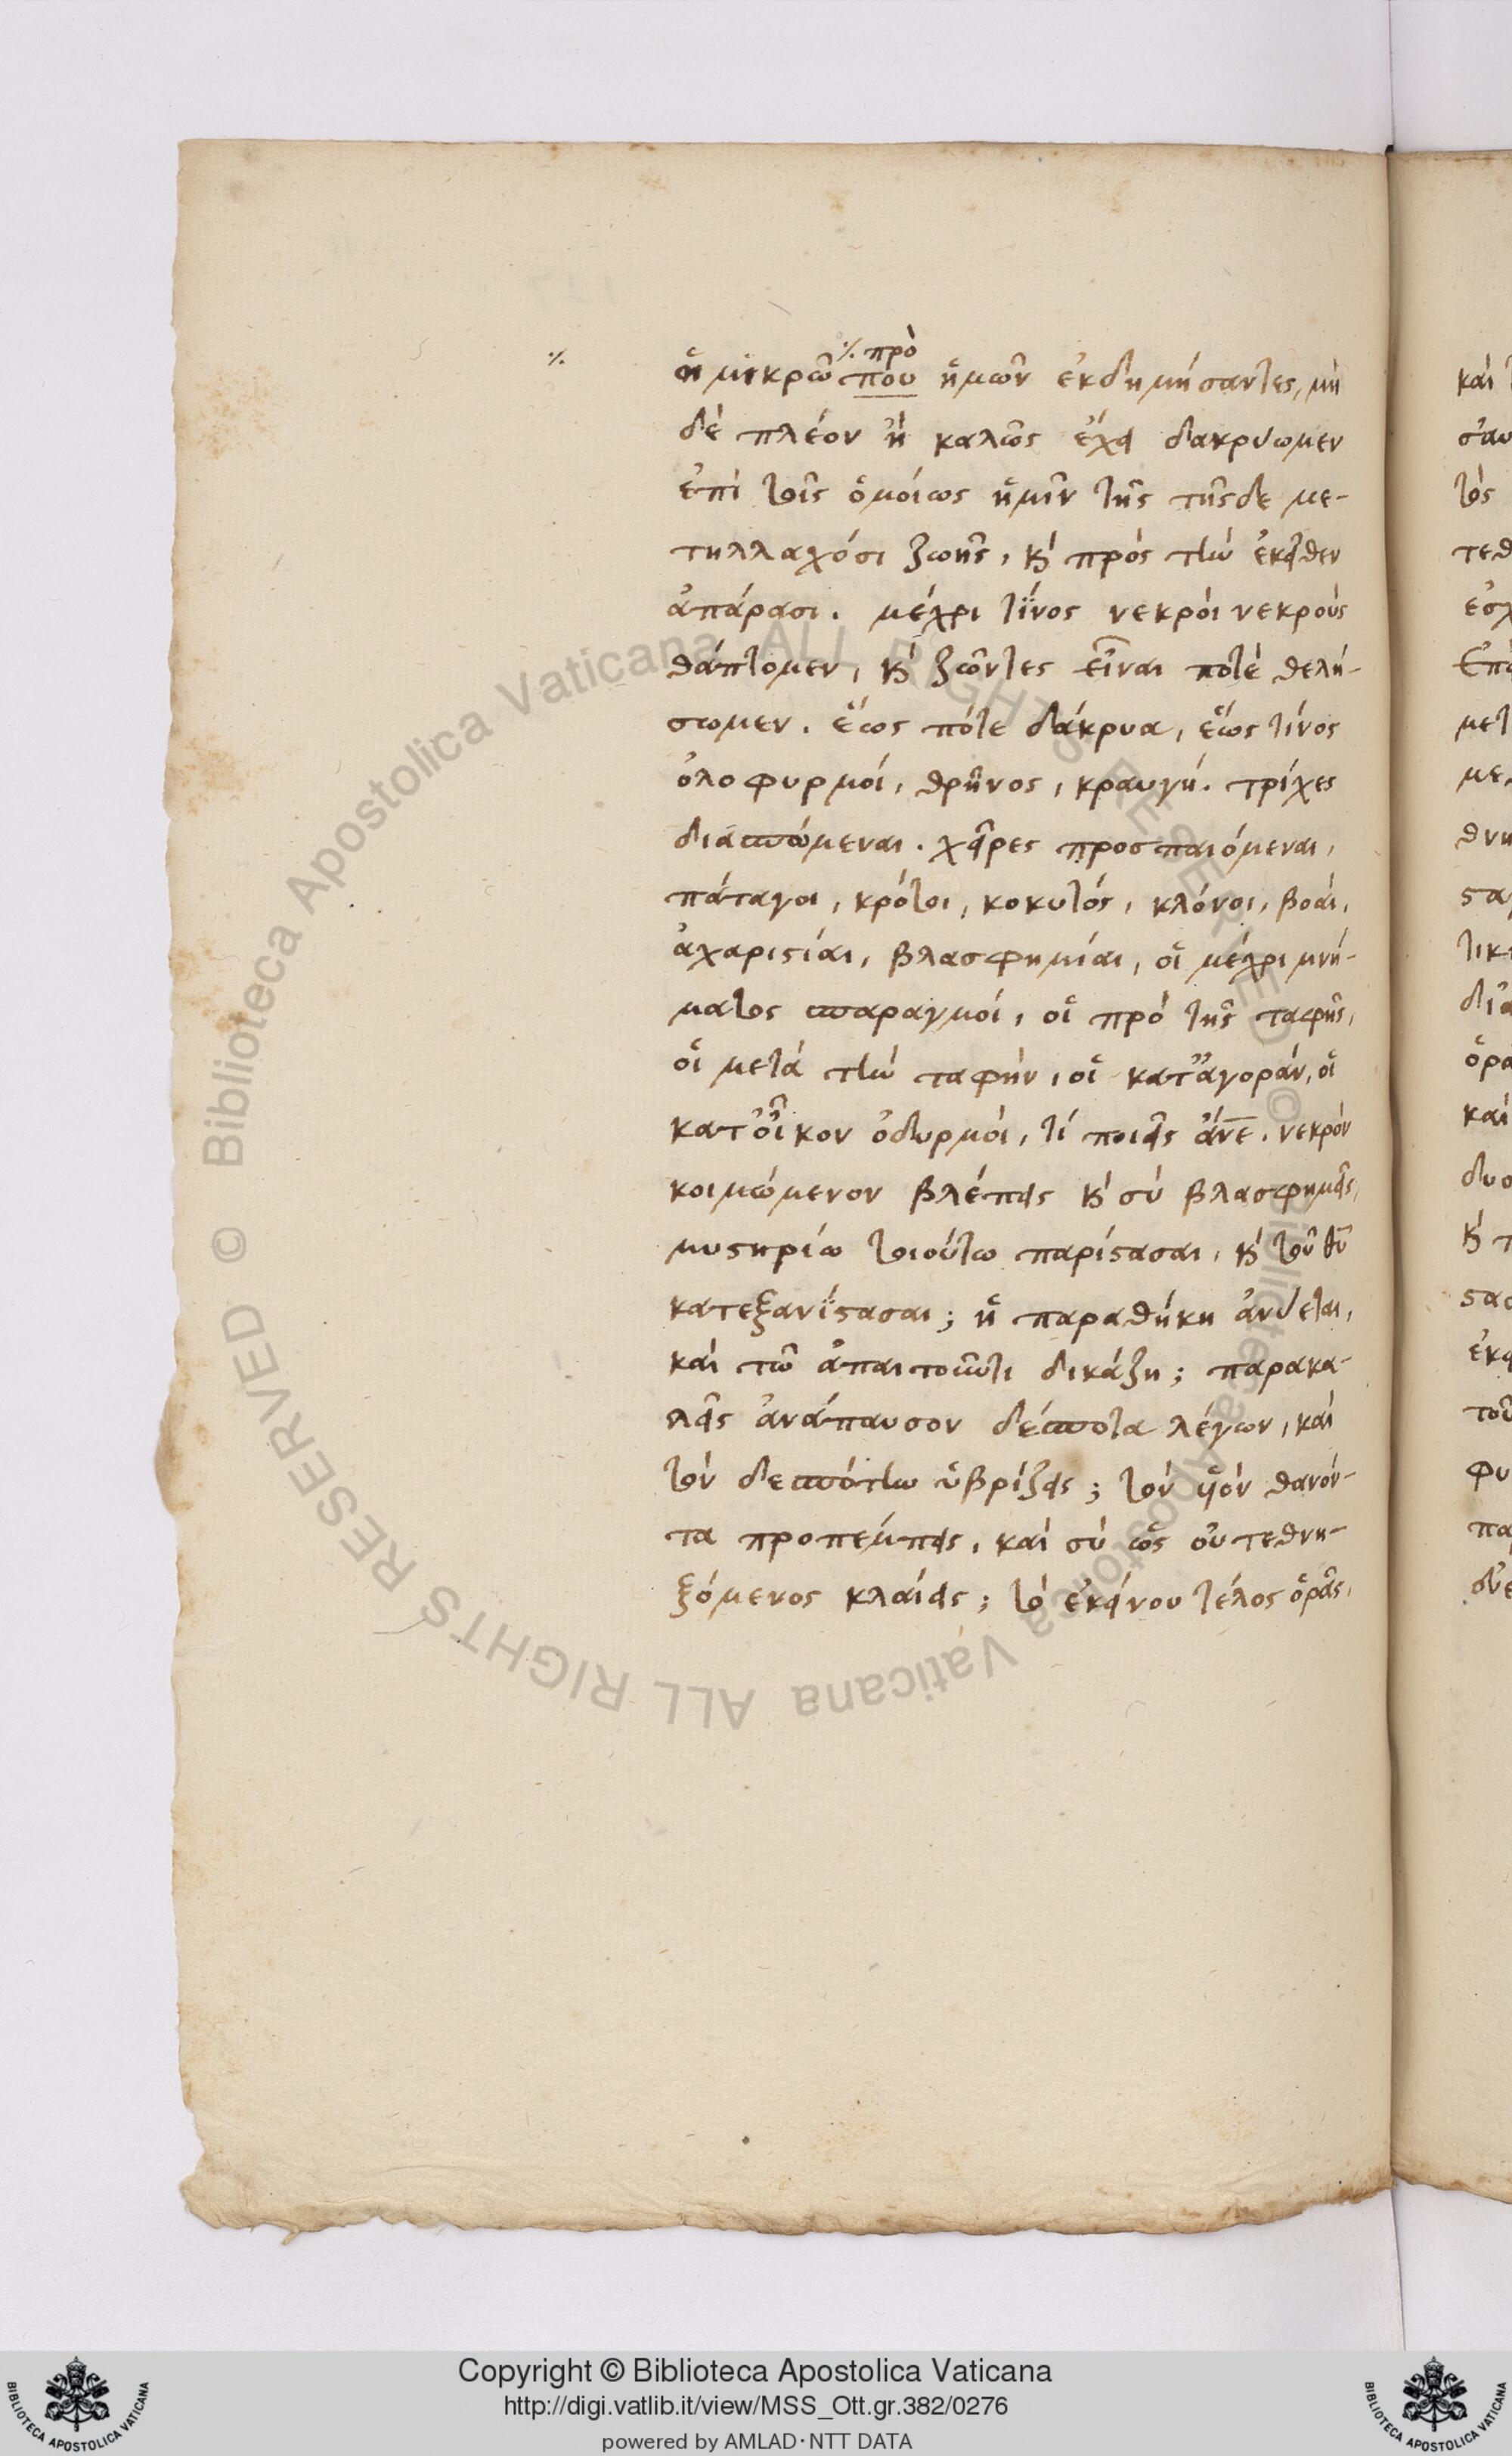 ⁒
⁒ πρὸ
ἢ μικρῶ που ἡμῶν ἐκδημήσαντες, μη
δὲ πλέον ἢ καλῶς ἔχει δακρύωμεν
ἐπὶ τοῖς ὁμοίως ἡμῖν τῆς τῆσδε με-
τηλλαχόσι ζωῆς, κ̀ πρὸς τὴν ἐκεῖθεν
ἀπάρασι. μέχρι τίνος νεκροὶ νεκροὺς
θάπτομεν, κ̀ ζῶντες εἶναι ποτὲ θελή-
σωμεν. ἕως πότε δάκρυα, ἕως τίνος
ὀλοφυρμοί, θρῆνος, κραυγή. τρίχες
διασπώμεναι. χεῖρες προσπαιόμεναι,
πάταγοι, κρότοι, κοκυτός, κλόνοι, βοαί,
ἀχαριστίαι, βλασφημίαι, οἱ μέχρι μνή-
ματος σπαραγμοί, οἱ πρὸ τῆς ταφῆς,
οἱ μετὰ τὴν ταφὴν, οἱ κατ' ἀγορὰν, οἱ
κατ' οἶκον ὀδυρμοὶ, τί ποιεῖς ἄνε. νεκρὸν
κοιμώμενον βλέπεις κ̀ σὺ βλασφημεῖς,
μυστηρίω τοιούτω παρίστασαι, κ̀ τοῦ θῦ
κατεξανίστασαι; ἡ παραθήκη ἀνύεται,
καὶ τῶ ἀπαιτοῦντι δικάζη; παρακα-
λεῖς ἀνάπαυσον δέσποτα λέγων, καὶ
τὸν δεσπότην ὑβρίζεις; τὸν υἱὸν θανόν-
τα προπέμπεις, καὶ σὺ ὡς οὐ τεθνη-
ξόμενος κλαίεις; τὸ ἐκείνου τέλος ὁρᾶς,
Copyright © Biblioteca Apostolica Vaticana
http://digi.vatlib.it/view/MSS_Ott.gr.382/0276
powered by AMLAD·NTT DATA